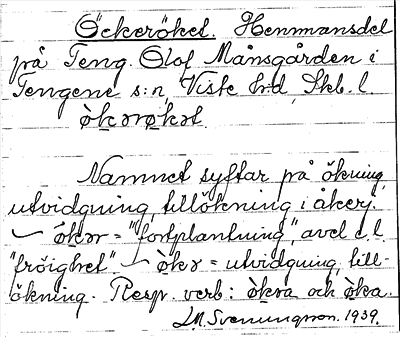 Öckerökel. Henmansdel
på Teng. Olof Månsgården i
Tengene s:n, Viste hd, Skb. l.
òkərøkət.
Namnet syftar på ökning,
utvidgning, tillökning i åker.
òkər = "fortplantning", avel e.l.
"fröighet". òkə = utvidgning, till-
ökning. Resp. verb: òkra och òka.
Svenungsson. 1939.